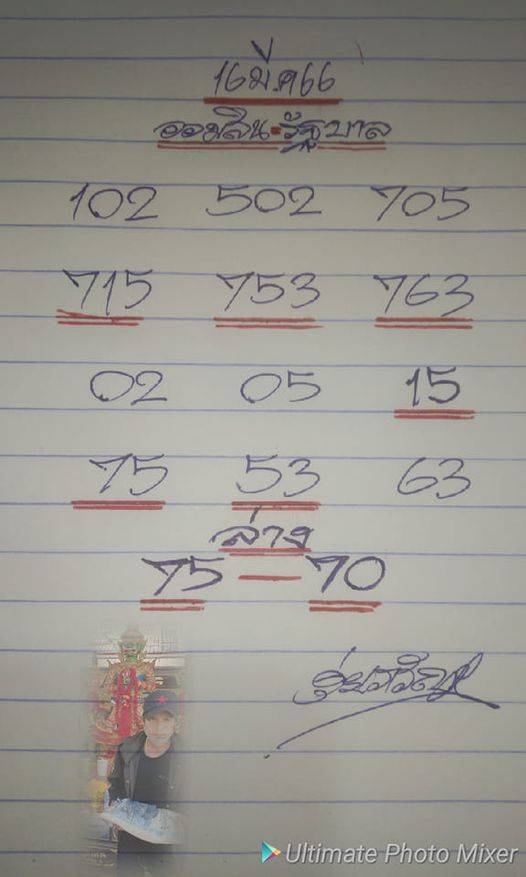 16มี.ค66
ออมสิน-รัฐบาล
102 502 705
715 753 763
02 05 15
75 53 63
ล่าง
75 — 70
Ultimate Photo Mixer